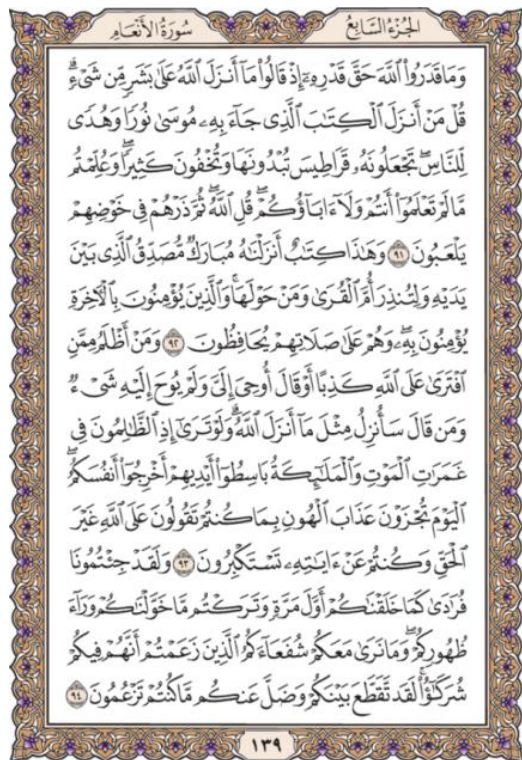 الجُزءُ السَّابِعُ سُورَةُ الأَنْعَامِ
وَمَا قَدَرُوا۟ ٱللَّهَ حَقَّ قَدْرِهِۦٓ إِذْ قَالُوا۟ مَآ أَنزَلَ ٱللَّهُ عَلَىٰ بَشَرٍ مِّن شَىْءٍ ۗ
قُلْ مَنْ أَنزَلَ ٱلْكِتَـٰبَ ٱلَّذِى جَآءَ بِهِۦ مُوسَىٰ نُورًا وَهُدًى
لِّلنَّاسِ ۖ تَجْعَلُونَهُۥ قَرَاطِيسَ تُبْدُونَهَا وَتُخْفُونَ كَثِيرًا ۖ وَعُلِّمْتُم
مَّا لَمْ تَعْلَمُوٓا۟ أَنتُمْ وَلَآ ءَابَآؤُكُمْ ۖ قُلِ ٱللَّهُ ۖ ثُمَّ ذَرْهُمْ فِى خَوْضِهِمْ
يَلْعَبُونَ ٩١ وَهَـٰذَا كِتَـٰبٌ أَنزَلْنَـٰهُ مُبَارَكٌ مُّصَدِّقُ ٱلَّذِى بَيْنَ
يَدَيْهِ وَلِتُنذِرَ أُمَّ ٱلْقُرَىٰ وَمَنْ حَوْلَهَا ۚ وَٱلَّذِينَ يُؤْمِنُونَ بِٱلْـَٔاخِرَةِ
يُؤْمِنُونَ بِهِۦ ۖ وَهُمْ عَلَىٰ صَلَاتِهِمْ يُحَافِظُونَ ٩٢ وَمَنْ أَظْلَمُ مِمَّنِ
ٱفْتَرَىٰ عَلَى ٱللَّهِ كَذِبًا أَوْ قَالَ أُوحِىَ إِلَىَّ وَلَمْ يُوحَ إِلَيْهِ شَىْءٌ
وَمَن قَالَ سَأُنزِلُ مِثْلَ مَآ أَنزَلَ ٱللَّهُ ۗ وَلَوْ تَرَىٰٓ إِذِ ٱلظَّـٰلِمُونَ فِى
غَمَرَٰتِ ٱلْمَوْتِ وَٱلْمَلَـٰٓئِكَةُ بَاسِطُوٓا۟ أَيْدِيهِمْ أَخْرِجُوٓا۟ أَنفُسَكُمُ ۖ
ٱلْيَوْمَ تُجْزَوْنَ عَذَابَ ٱلْهُونِ بِمَا كُنتُمْ تَقُولُونَ عَلَى ٱللَّهِ غَيْرَ
ٱلْحَقِّ وَكُنتُمْ عَنْ ءَايَـٰتِهِۦ تَسْتَكْبِرُونَ ٩٣ وَلَقَدْ جِئْتُمُونَا
فُرَٰدَىٰ كَمَا خَلَقْنَـٰكُمْ أَوَّلَ مَرَّةٍ وَتَرَكْتُم مَّا خَوَّلْنَـٰكُمْ وَرَآءَ
ظُهُورِكُمْ ۖ وَمَا نَرَىٰ مَعَكُمْ شُفَعَآءَكُمُ ٱلَّذِينَ زَعَمْتُمْ أَنَّهُمْ فِيكُمْ
شُرَكَـٰٓؤُا۟ ۚ لَقَد تَّقَطَّعَ بَيْنَكُمْ وَضَلَّ عَنكُم مَّا كُنتُمْ تَزْعُمُونَ ٩٤
١٣٩